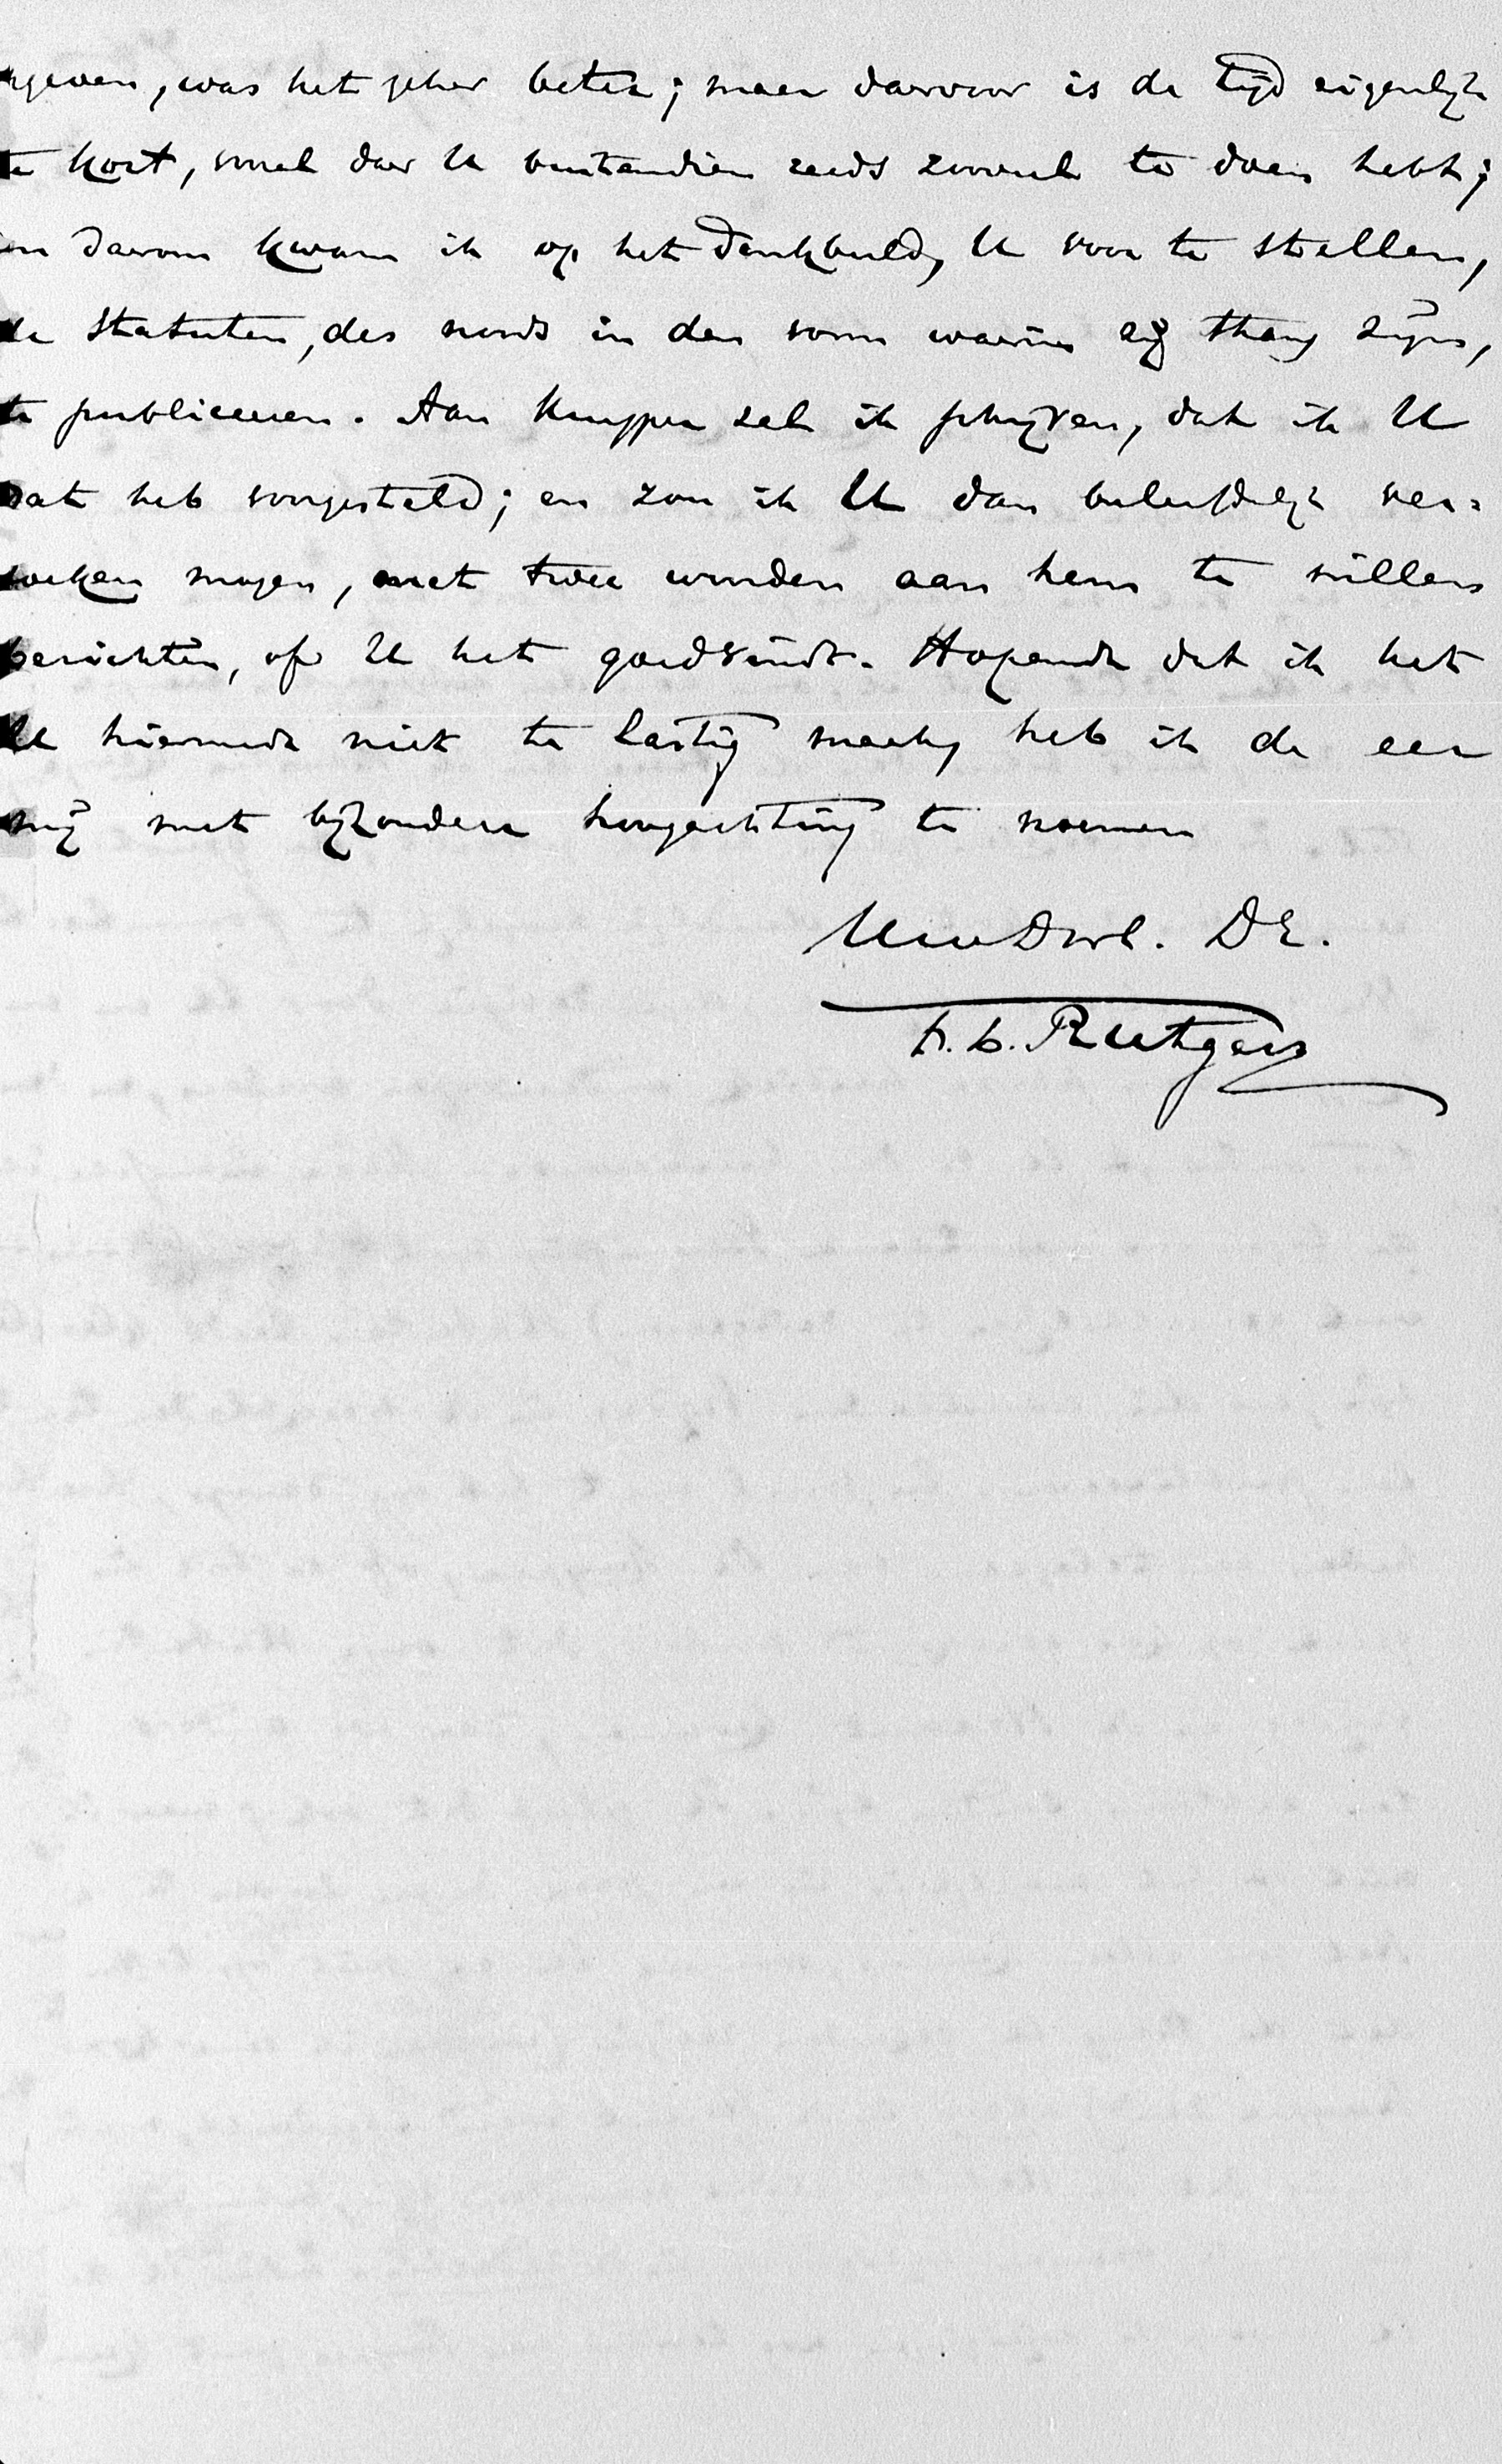 geven, was het zeker beter; maar daarvoor is de tijd eigenlijk
te kort, vooral daar U buitendien reeds zooveel te doen hebt;
en daarom kwam ik op het denkbeeld, U voor te stellen,
de Statuten, des noods in den vorm waarin zij thans zijn,
te publiceeren. Aan Kuyper zal ik schrijven, dat ik U
dat heb voorgesteld; en zou ik U dan beleefdelijk ver=
zoeken mogen, met twee woorden aan hem te willen
berichten, of U het goedvindt. Hopende dat ik het
U hiermede niet te lastig maak, heb ik de eer
mij met bijzondere hoogachting te noemen
UwDwl. DE.
F. L. Rutgers